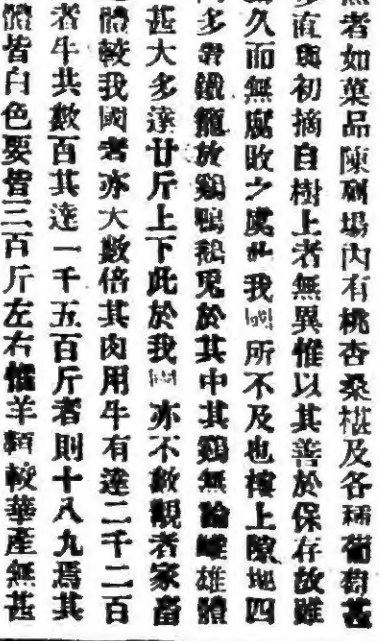 者如菓品陳列場內有桃杏桑椹及各種葡萄甚
直與初摘自樹上者無異惟以其善於保存故雖
久而無腐敗之處此我國所不及也樓上隙地四
多置鐵籠放鷄鴨鵝兎於其中其鷄無論雌雄體
甚大多達廿斤上下此於我國亦不數觀者家畜
體較我國者亦大數倍其肉用牛有達二千二百
者牛共數百其達一千五百斤者則十八九焉其
體皆白色要皆三百斤左右惟羊類較華產無甚